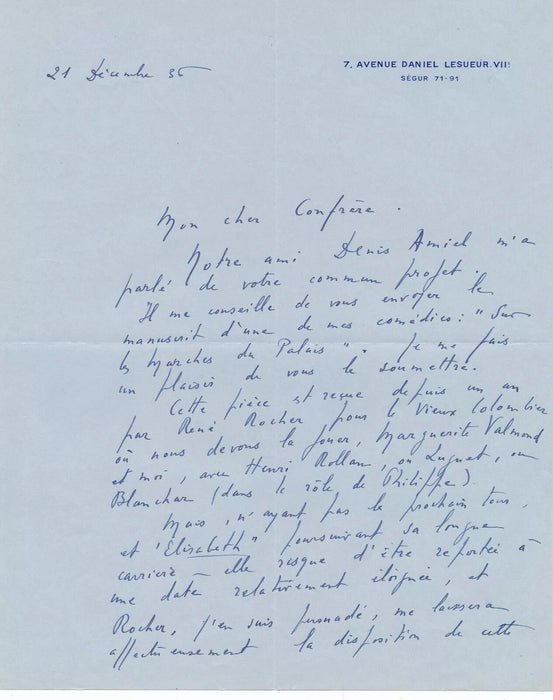 21 Décembre 35
7, AVENUE DANIEL LESUEUR. VIIE
SÉGUR 71-91
Mon cher Confrère.
Notre ami Denis Amiel m'a
parlé de votre commun projet.
Il me conseille de vous envoyer le
manuscrit d'une de mes comédies : "Sur
les Marches du Palais". Je me fais
un plaisir de vous le soumettre.
Cette pièce est reçue depuis un an
par René Rocher pour le Vieux Colombier
où nous devons la jouer, Marguerite Valmond
et moi, avec Henri Rollan, ou Luguet, ou
Blanchar (dans le rôle de Philippe).
Mais, n'ayant pas le prochain tour,
et "Elisabeth" poursuivant sa longue
carrière – elle risque d'être reportée à
une date relativement éloignée, et
Rocher, j'en suis persuadé, me laissera
affectueusement la disposition de cette